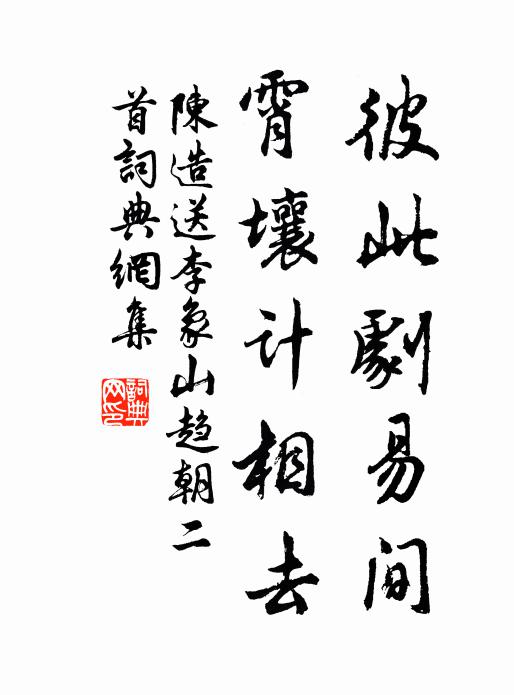 彼此劇易间
霄壤计相去
陳造送李象山趋朝二
首詞典網集
詞典網印